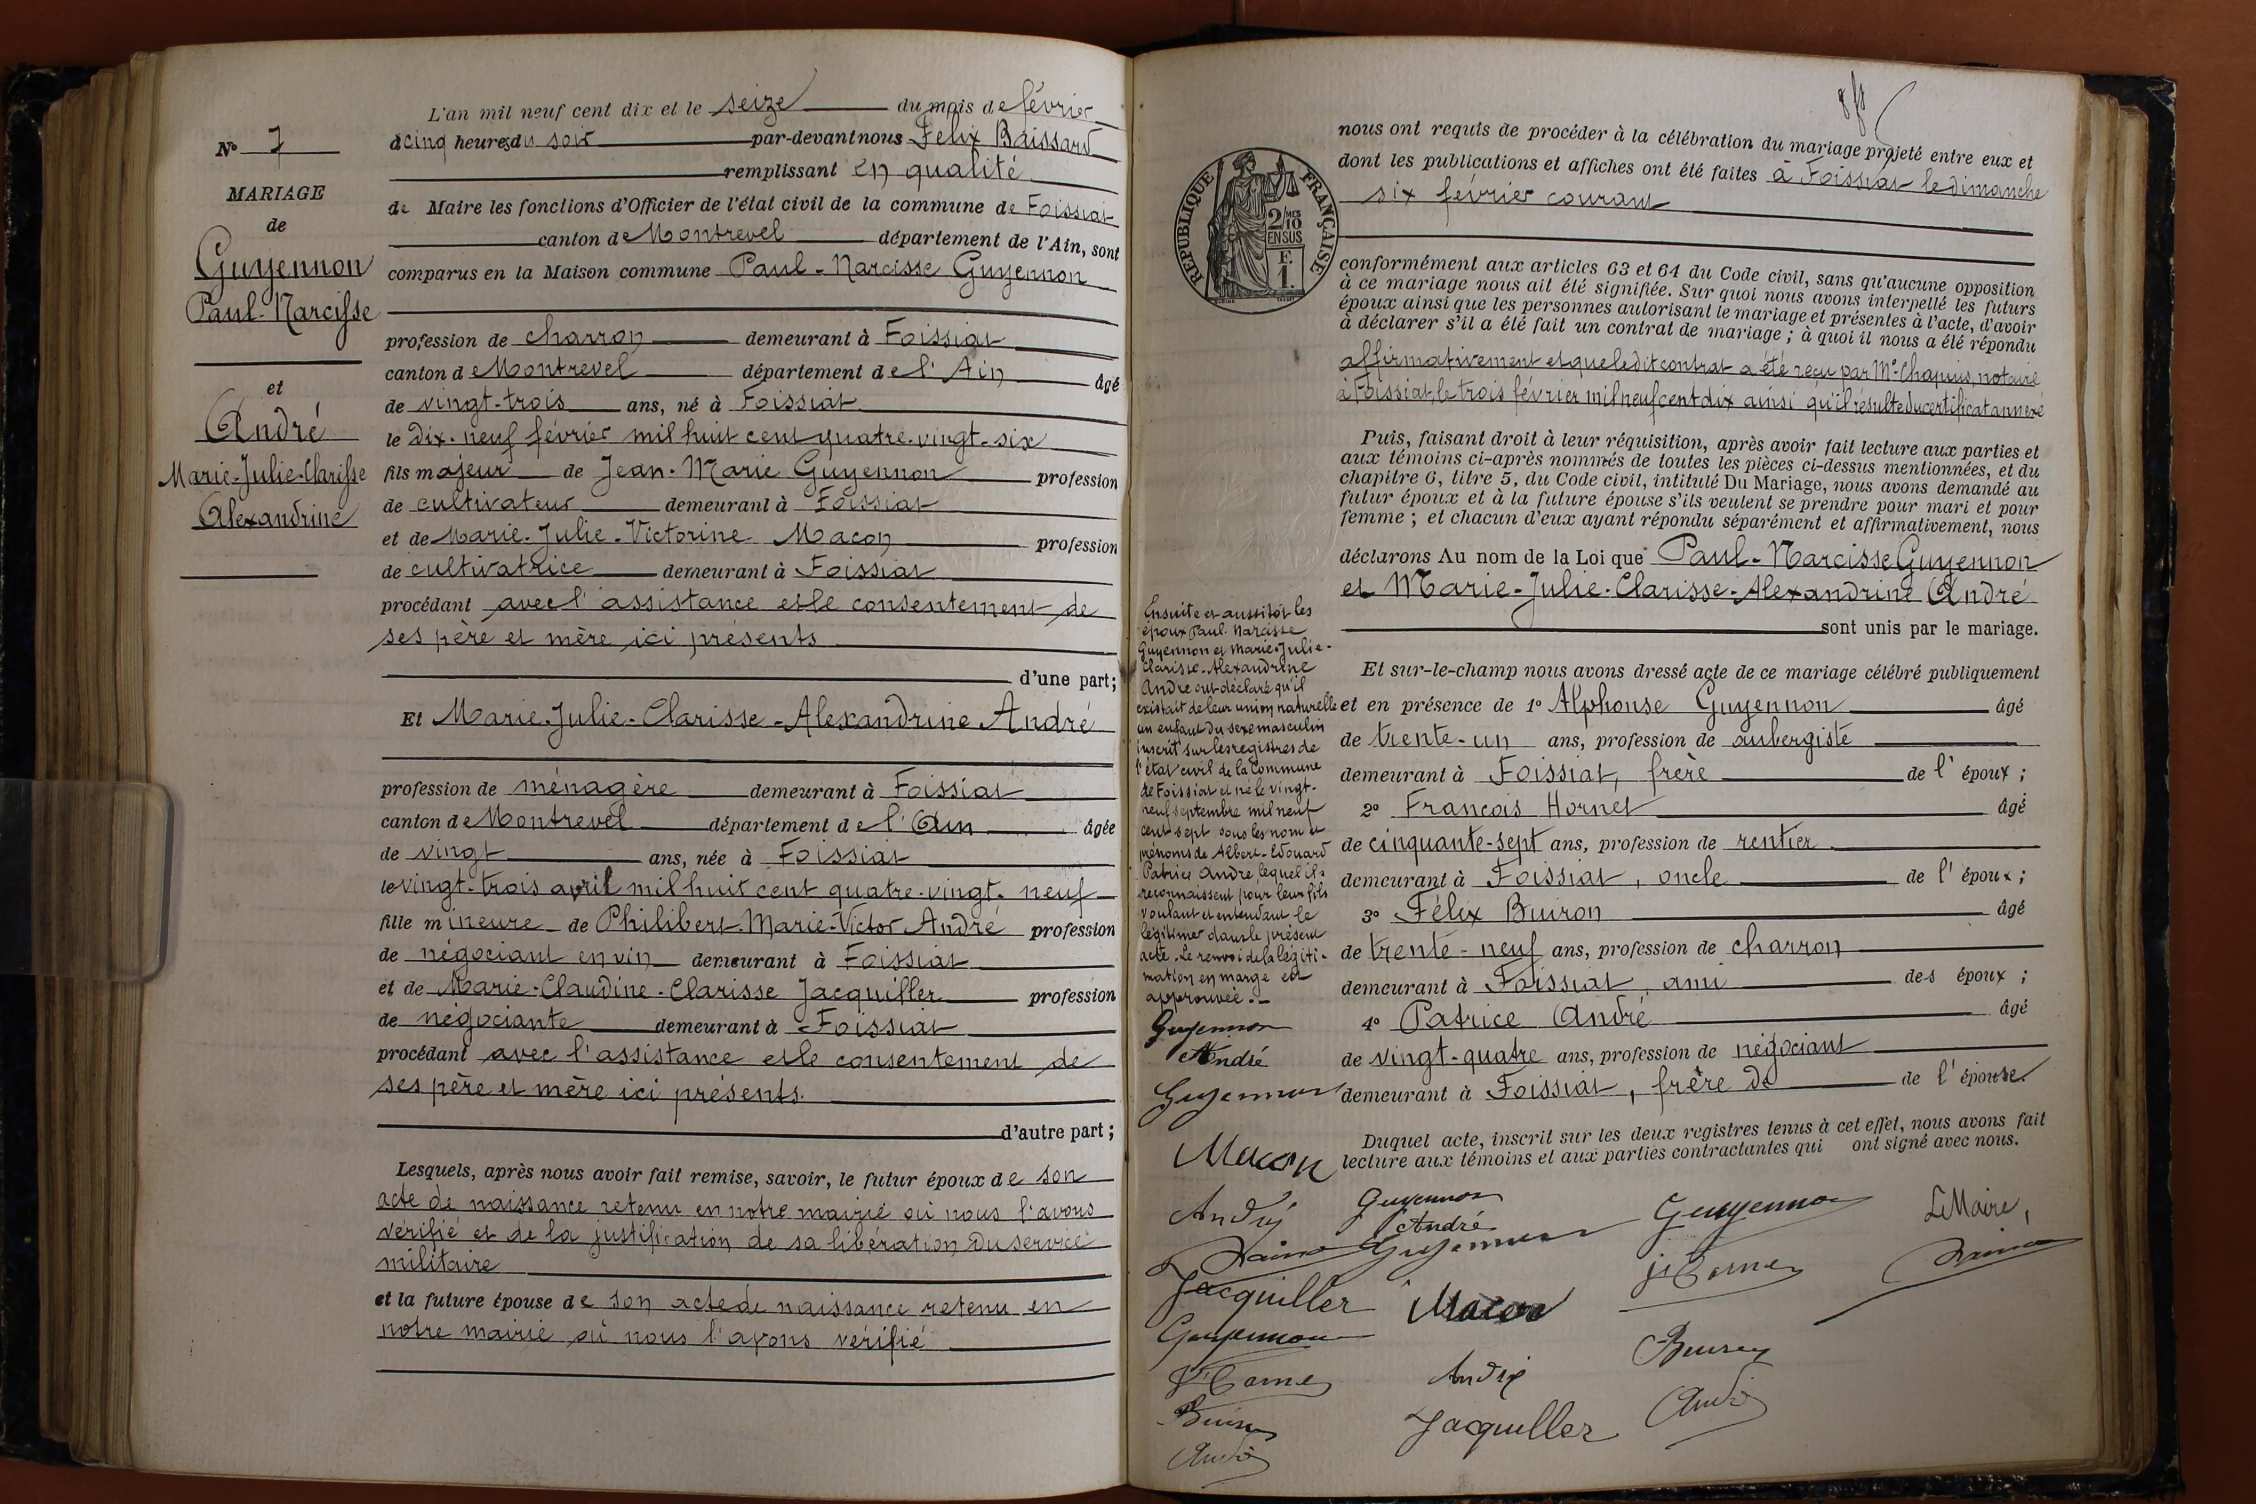 L'an mil neuf cent dix et le seize du mois de février
à cinq heures du soir par-devant nous Félix Baissard
remplissant en qualité
de Maire les fonctions d'Officier de l'état civil de la commune de Foissiat
canton de Montrevel département de l'Ain, sont
comparus en la Maison commune Paul-Narcisse Guyennon
profession de charron demeurant à Foissiat
canton de Montrevel département de l'Ain âgé
de vingt-trois ans, né à Foissiat
le dix-neuf février mil huit cent quatre-vingt-six
fils majeur de Jean-Marie Guyennon profession
de cultivateur demeurant à Foissiat
et de Marie-Julie-Victorine Macon profession
de cultivatrice demeurant à Foissiat
procédant avec l'assistance et le consentement de
ses père et mère ici présents
d'une part;
Et Marie-Julie-Clarisse-Alexandrine André
profession de ménagère demeurant à Foissiat
canton de Montrevel département de l'Ain âgée
de vingt ans, née à Foissiat
le vingt-trois avril mil huit cent quatre-vingt-neuf
fille mineure de Philibert-Marie-Victor André profession
de négociant en vin demeurant à Foissiat
et de Marie-Claudine-Clarisse Jacquiller profession
de négociante demeurant à Foissiat
procédant avec l'assistance et le consentement de
ses père et mère ici présents.
d'autre part;
Lesquels, après nous avoir fait remise, savoir, le futur époux de son
acte de naissance retenu en notre mairie où nous l'avons
vérifié et de la justification de sa libération du service
militaire
et la future épouse de son acte de naissance retenu en
notre mairie où nous l'avons vérifié
No 7
MARIAGE
de
Guyennon
Paul-Narcisse
et
André
Marie-Julie-Clarisse
Alexandrine
nous ont requis de procéder à la célébration du mariage projeté entre eux et
dont les publications et affiches ont été faites à Foissiat le dimanche
six février courant
conformément aux articles 63 et 64 du Code civil, sans qu'aucune opposition
à ce mariage nous ait été signifiée. Sur quoi nous avons interpellé les futurs
époux ainsi que les personnes autorisant le mariage et présentes à l'acte, d'avoir
à déclarer s'il a été fait un contrat de mariage; à quoi il nous a été répondu
affirmativement et que ledit contrat a été reçu par Me Chapuis, notaire
à Foissiat, le trois février mil neuf cent dix ainsi qu'il résulte du certificat annexé
Puis, faisant droit à leur réquisition, après avoir fait lecture aux parties et
aux témoins ci-après nommés de toutes les pièces ci-dessus mentionnées, et du
chapitre 6, titre 5, du Code civil, intitulé Du Mariage, nous avons demandé au
futur époux et à la future épouse s'ils veulent se prendre pour mari et pour
femme; et chacun d'eux ayant répondu séparément et affirmativement, nous
déclarons Au nom de la Loi que Paul-Narcisse Guyennon
et Marie-Julie-Clarisse-Alexandrine André
sont unis par le mariage.
Et sur-le-champ nous avons dressé acte de ce mariage célébré publiquement
et en présence de 1o Alphonse Guyennon âgé
de trente-un ans, profession de aubergiste
demeurant à Foissiat, frère de l'époux;
2o François Hornet âgé
de cinquante-sept ans, profession de rentier
demeurant à Foissiat, oncle de l'époux;
3o Félix Buiron âgé
de trente-neuf ans, profession de charron
demeurant à Foissiat, ami des époux;
4o Patrice André âgé
de vingt-quatre ans, profession de négociant
demeurant à Foissiat, frère de de l'épouse.
Duquel acte, inscrit sur les deux registres tenus à cet effet, nous avons fait
lecture aux témoins et aux parties contractantes qui ont signé avec nous.
RÉPUBLIQUE FRANÇAISE
2/10
EN SUS
F.
1.
Ensuite et aussitôt les
époux Paul-Narcisse
Guyennon et Marie-Julie-
Clarisse-Alexandrine
André ont déclaré qu'il
existait de leur union naturelle
un enfant du sexe masculin
inscrit sur les registres de
l'état civil de la commune
de Foissiat et né le vingt-
neuf septembre mil neuf
cent sept sous les nom et
prénoms de Albert-Edouard
Patrice André, lequel ils
reconnaissent pour leur fils
voulant et entendant le
légitimer dans le présent
acte. Le renvoi de la légiti-
mation en marge est
approuvée.
Guyennon
André
Guyennon
Macon
André
Jacquiller
Guyennon
Guyennon
André
Guyennon
Macon
André
Jacquiller
Guyennon
Buiron
André
Le Maire,